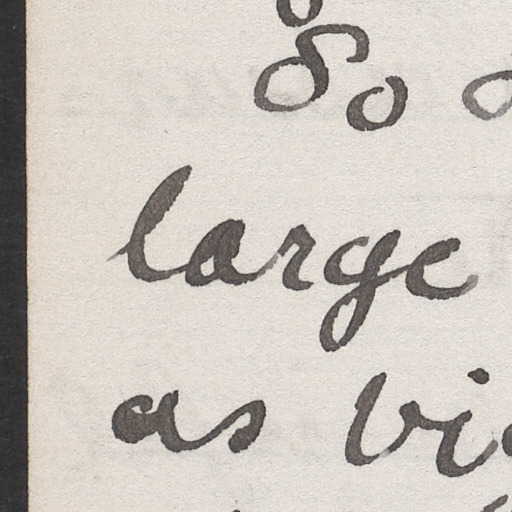 So
large
as